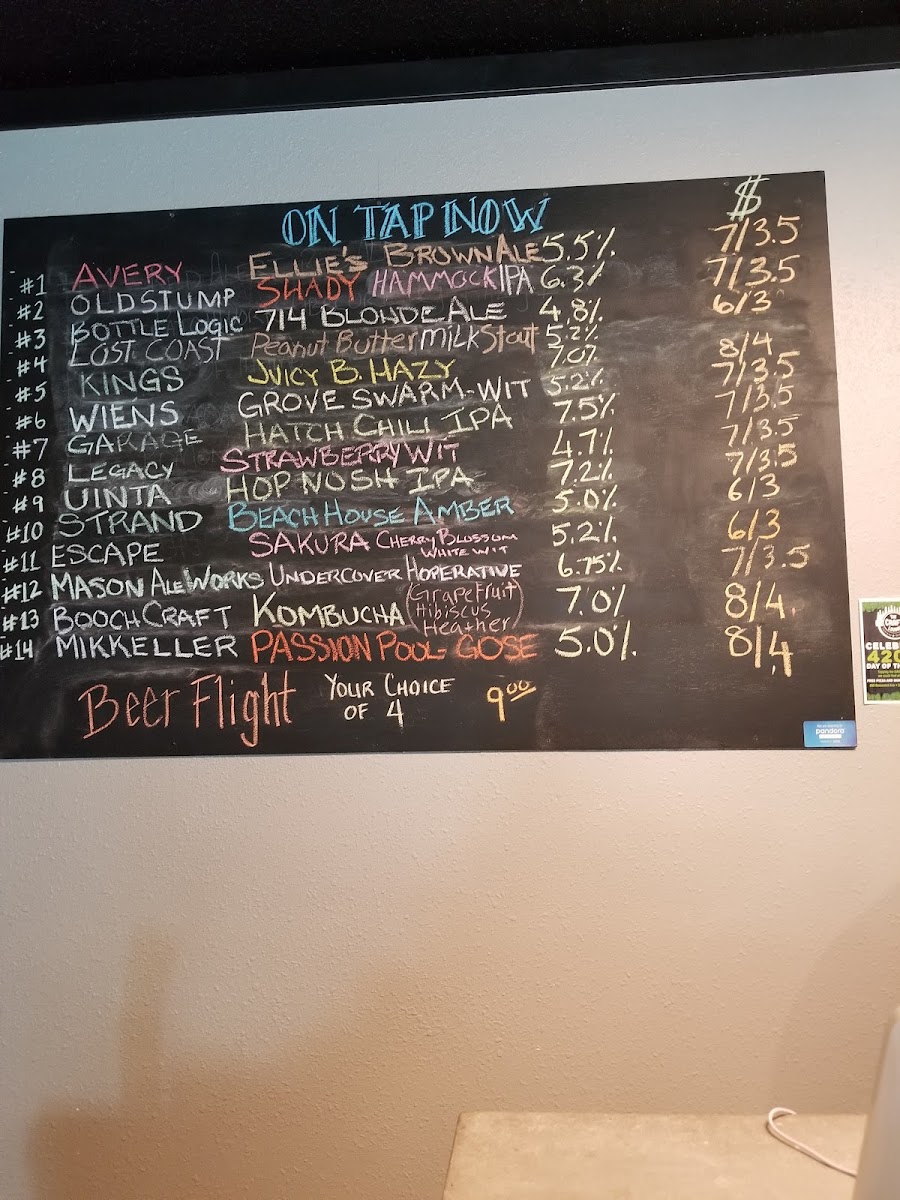 ON TAP NOW $
#1 AVERY ELLIE'S BROWN ALE 5.5% 7/3.5
#2 OLD STUMP SHADY HAMMOCK IPA 6.3% 7/3.5
#3 BOTTLE LOGIC 714 BLONDE ALE 4.8% 6/3
#4 LOST COAST Peanut Butter milk Stout 5.2%
#5 KINGS JUICY B. HAZY 7.0% 8/4
#6 WIENS GROVE SWARM-WIT 5.2% 7/3.5
#7 GARAGE HATCH CHILI IPA 7.5% 7/3.5
#8 LEGACY STRAWBERRY WIT 4.7% 7/3.5
#9 UINTA HOP NOSH IPA 7.2% 7/3.5
#10 STRAND BEACH HOUSE AMBER 5.0% 6/3
#11 ESCAPE SAKURA CHERRY BLOSSOM WHITE WIT 5.2% 6/3
#12 MASON ALE WORKS UNDERCOVER HOPERATIVE 6.75% 7/3.5
#13 BOOCH CRAFT KOMBUCHA (Grapefruit Hibiscus Heather) 7.0% 8/4
#14 MIKKELLER PASSION POOL-GOSE 5.0% 8/4
Beer Flight YOUR CHOICE OF 4 9.00
pandora
CELEB
420
DAY OF TH